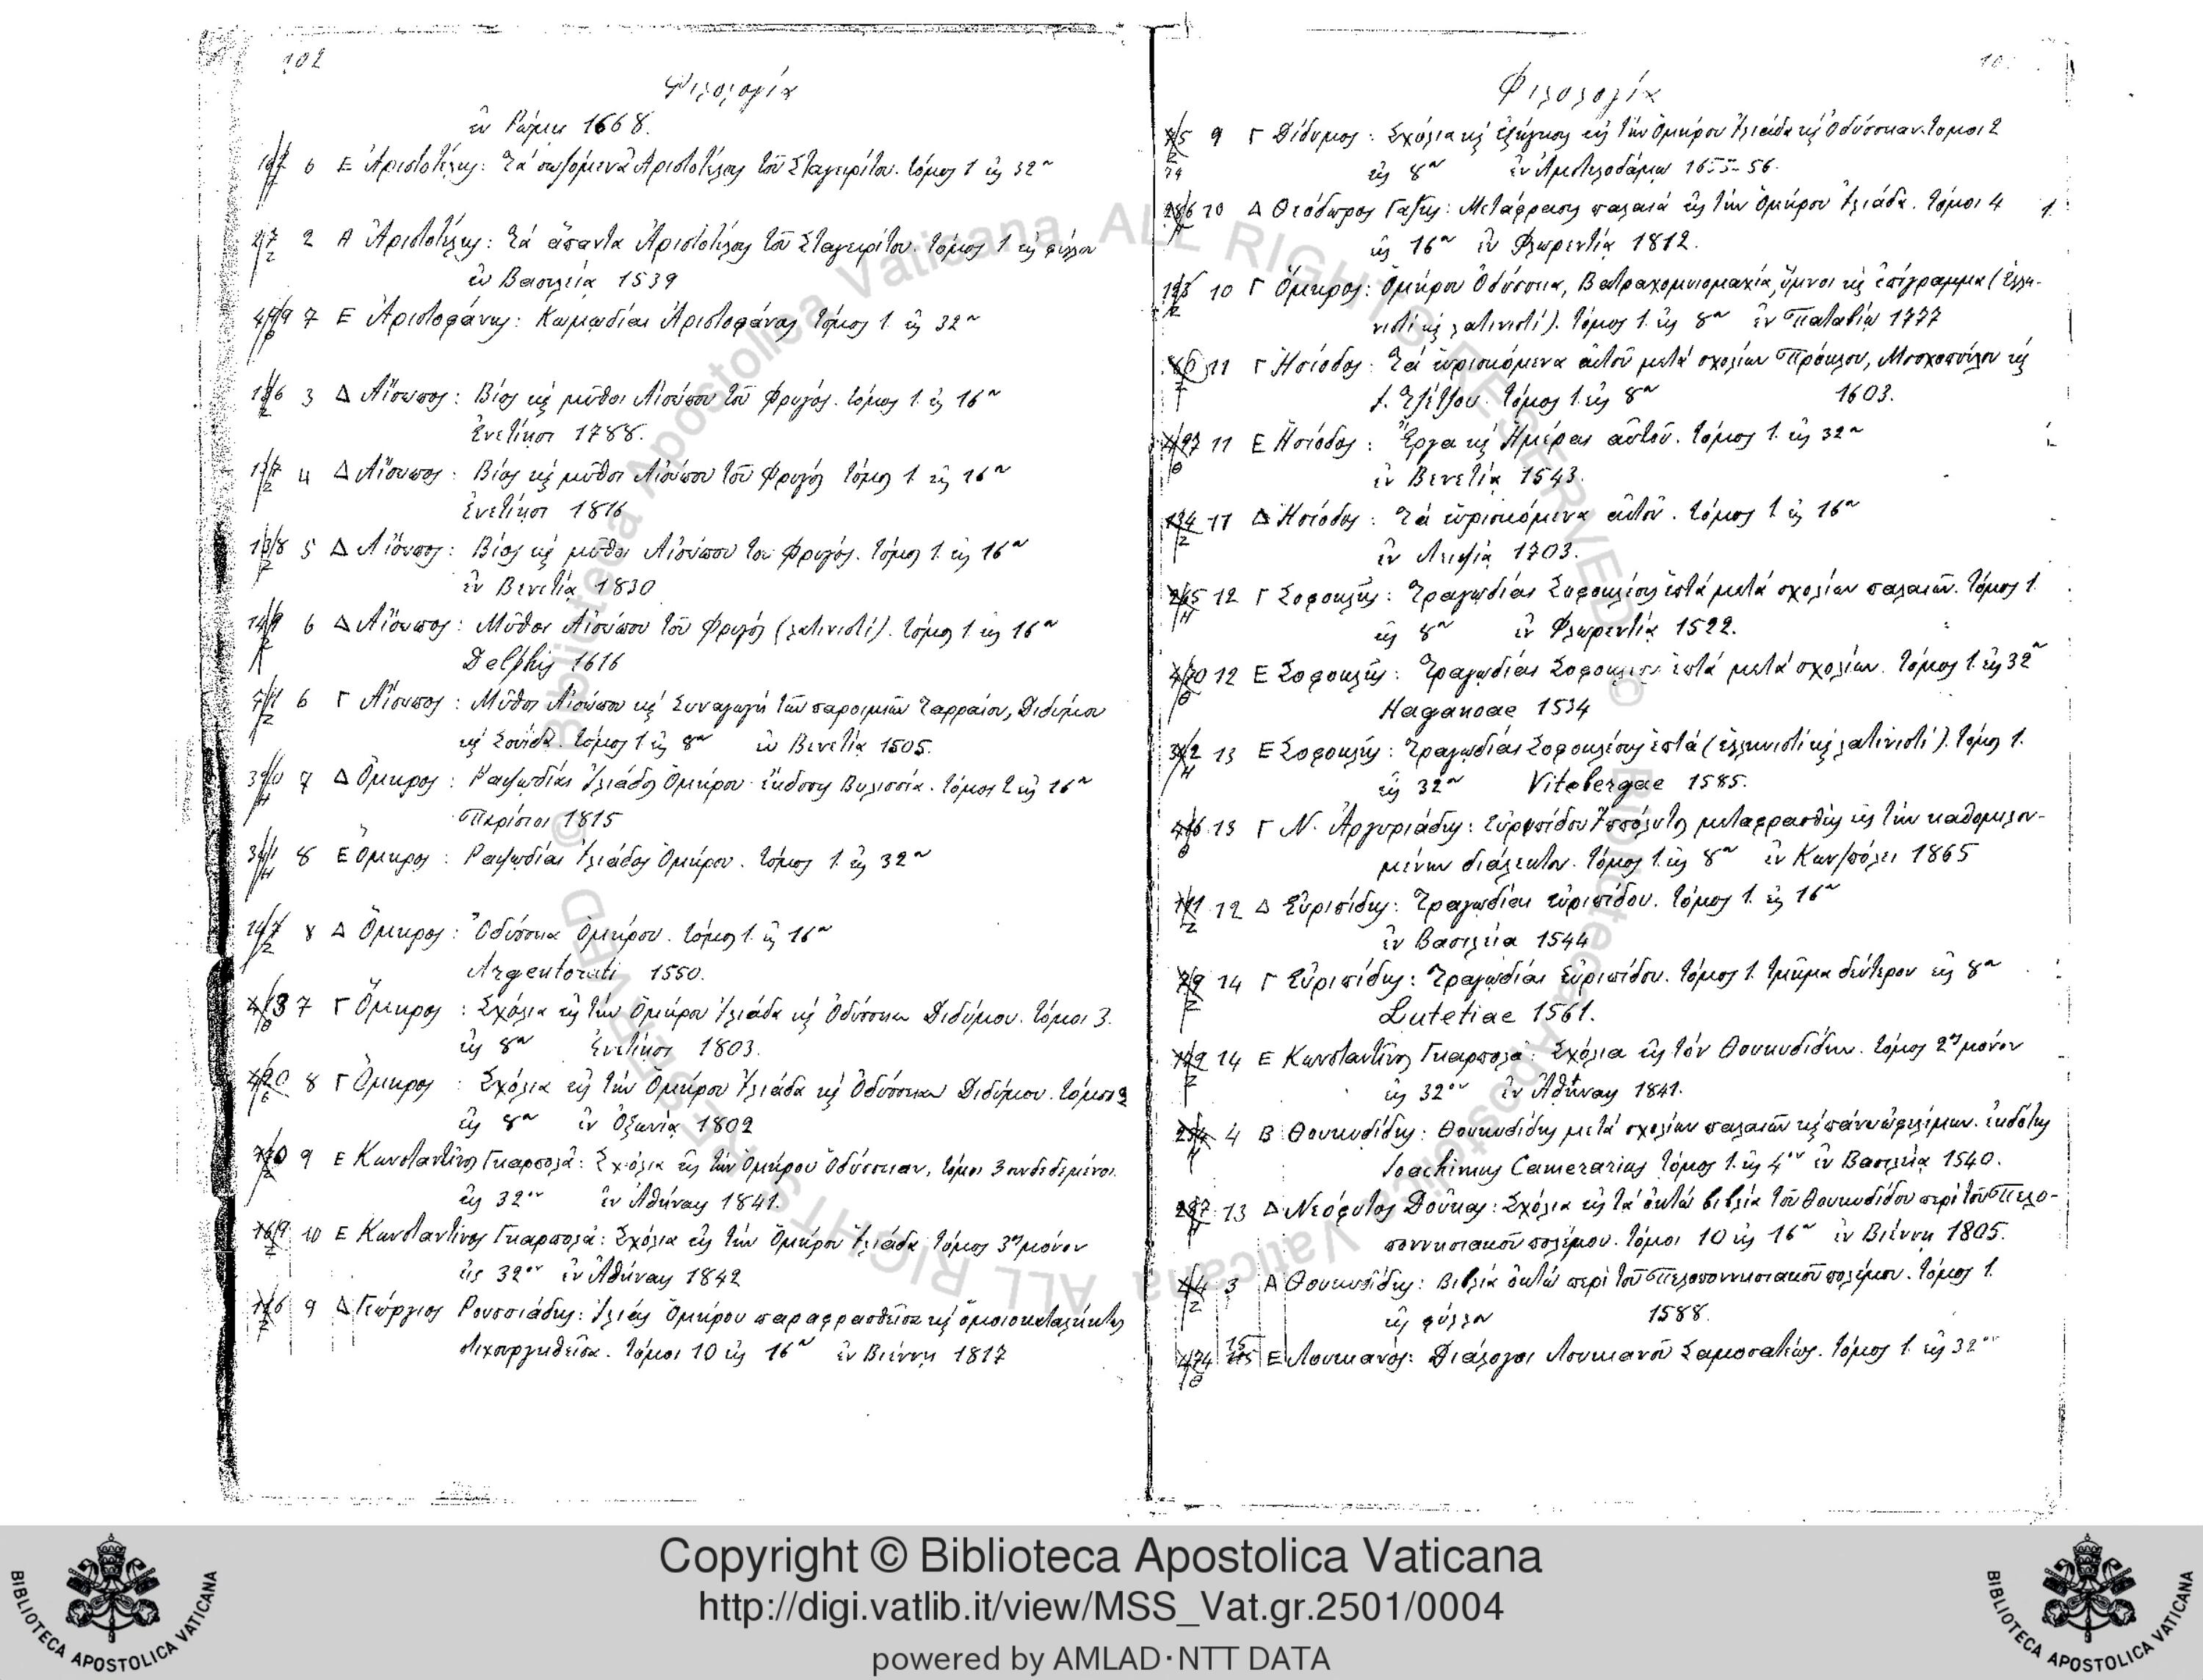 102
Φιλολογία
ἐν Ρώμῃ 1668.
6 Ε Ἀριστοτέλης: Τά σωζόμενα Ἀριστοτέλους τοῦ Σταγειρίτου. τόμος 1 εἰς 32ον
2 Α Ἀριστοτέλης: Τά ἅπαντα Ἀριστοτέλους τοῦ Σταγειρίτου. τόμος 1 εἰς φύλλον
ἐν Βασιλείᾳ 1539
7 Ε Ἀριστοφάνης: Κωμῳδίαι Ἀριστοφάνους τόμος 1. εἰς 32ον
3 Δ Αἴσωπος: Βίος κ῀ μῦθοι Αἰσώπου τοῦ Φρυγός. τόμος 1. εἰς 16ον
Ἐνετίησι 1788.
4 Δ Αἴσωπος: Βίος κ῀ μῦθοι Αἰσώπου τοῦ Φρυγός τόμος 1 εἰς 16ον
Ἐνετίησι 1816
5 Δ Αἴσωπος: Βίος κ῀ μῦθοι Αἰσώπου τοῦ Φρυγός. τόμος 1. εἰς 16ον
ἐν Βενετίᾳ 1830
6 Δ Αἴσωπος: Μῦθοι Αἰσώπου τοῦ Φρυγός (λατινιστί). τόμος 1 εἰς 16ον
Delphis 1616
6 Γ Αἴσωπος: Μῦθοι Αἰσώπου κ῀ Συναγωγή τῶν παροιμιῶν Ταρραίου, Διδύμου
κ῀ Σουΐδα. τόμος 1 εἰς 8ον ἐν Βενετίᾳ 1505.
7 Δ Ὅμηρος: Ραψωδίαι Ἰλιάδος Ὁμήρου ἔκδοσις Βολισσία. τόμος εἰς 16ον
Παρίσιοι 1815
8 Ε Ὅμηρος: Ραψωδίαι Ἰλιάδος Ὁμήρου. τόμος 1. εἰς 32ον
8 Δ Ὅμηρος: Ὀδύσσεια Ὁμήρου. τόμος 1. εἰς 16ον
Argentorati 1550.
7 Γ Ὅμηρος: Σχόλια εἰς τήν Ὁμήρου Ἰλιάδα κ῀ Ὀδύσσειαν Διδύμου. τόμοι 3.
εἰς 8ον Ἐνετίησι 1803.
8 Γ Ὅμηρος: Σχόλια εἰς τήν Ὁμήρου Ἰλιάδα κ῀ Ὀδύσσειαν Διδύμου.
εἰς 8ον ἐν Ὀξωνίᾳ 1802
9 Ε Κωνσταντῖνος Γκαρπολᾶ: Σχόλια εἰς τήν Ὁμήρου Ὀδύσσειαν, τόμοι 3 συνδεδεμένοι.
εἰς 32ον ἐν Ἀθήναις 1841.
10 Ε Κωνσταντῖνος Γκαρπολᾶ: Σχόλια εἰς τήν Ὁμήρου Ἰλιάδα τόμος 3ος μόνον
εἰς 32ον ἐν Ἀθήναις 1842
9 Δ Γεώργιος Ρουσσιάδης: Ἰλιάς Ὁμήρου παραφρασθεῖσα κ῀ ὁμοιοκαταλήκτως
στιχουργηθεῖσα. τόμοι 10 εἰς 16ον ἐν Βιέννῃ 1817
Φιλολογία
9 Γ Δίδυμος: Σχόλια κ῀ ἐξήγησις εἰς τήν Ὁμήρου Ἰλιάδα κ῀ Ὀδύσσειαν. τόμοι 2
εἰς 8ον ἐν Ἀμστελοδάμῳ 1655-56.
10 Δ Θεόδωρος Γαζῆς: Μετάφρασις παλαιά εἰς τήν Ὁμήρου Ἰλιάδα. τόμοι 4
εἰς 16ον ἐν Φλωρεντίᾳ 1812.
10 Γ Ὅμηρος: Ὁμήρου Ὀδύσσεια, Βατραχομυομαχία, ὕμνοι κ῀ ἐπίγραμμα (ἑλλη-
νιστί κ῀ λατινιστί). τόμος 1. εἰς 8ον ἐν Παταβίῳ 1777
11 Γ Ἡσίοδος: Τά εὑρισκόμενα αὐτοῦ μετά σχολίων Πρόκλου, Μοσχοπούλου κ῀
Ι. Τζέτζου. τόμος 1. εἰς 8ον 1603.
11 Ε Ἡσίοδος: Ἔργα κ῀ Ἡμέραι αὐτοῦ. τόμος 1. εἰς 32ον
ἐν Βενετίᾳ 1543.
11 Δ Ἡσίοδος: Τά εὑρισκόμενα αὐτοῦ. τόμος 1. εἰς 16ον
ἐν Λειψίᾳ 1703.
12 Γ Σοφοκλῆς: Τραγῳδίαι Σοφοκλέους ἑπτά μετά σχολίων παλαιῶν. τόμος 1.
εἰς 8ον ἐν Φλωρεντίᾳ 1522.
12 Ε Σοφοκλῆς: Τραγῳδίαι Σοφοκλέους ἑπτά μετά σχολίων. τόμος 1. εἰς 32ον
Haganoae 1534
13 Ε Σοφοκλῆς: Τραγῳδίαι Σοφοκλέους ἑπτά (ἑλληνιστί κ῀ λατινιστί). τόμος 1.
εἰς 32ον Vitebergae 1585.
13 Γ Ν. Ἀργυριάδης: Εὐριπίδου Ἱππόλυτος μεταφρασθείς εἰς τήν καθομιλου-
μένην διάλεκτον. τόμος 1. εἰς 8ον ἐν Κων/πόλει 1865
12 Δ Εὐριπίδης: Τραγῳδίαι Εὐριπίδου. τόμος 1. εἰς 16ον
ἐν Βασιλείᾳ 1544
14 Γ Εὐριπίδης: Τραγῳδίαι Εὐριπίδου. τόμος 1. τμῆμα δεύτερον εἰς 8ον
Lutetiae 1561.
14 Ε Κωνσταντῖνος Γκαρπολᾶ: Σχόλια εἰς τόν Θουκυδίδην. τόμος 2ος μόνον
εἰς 32ον ἐν Ἀθήναις 1841.
4 Β Θουκυδίδης: Θουκυδίδης μετά σχολίων παλαιῶν κ῀ πάνυ ὠφελίμων. ἐκδότης
Joachimus Camerarius τόμος 1. εἰς 4ον ἐν Βασιλείᾳ 1540.
13 Δ Νεόφυτος Δούκας: Σχόλια εἰς τά ὀκτώ βιβλία τοῦ Θουκυδίδου περί τοῦ Πελο-
ποννησιακοῦ πολέμου. τόμοι 10 εἰς 16ον ἐν Βιέννῃ 1805.
3 Α Θουκυδίδης: Βιβλία ὀκτώ περί τοῦ Πελοποννησιακοῦ πολέμου. τόμος 1.
εἰς φύλλον 1588.
15 Ε Λουκιανός: Διάλογοι Λουκιανοῦ Σαμοσατέως. τόμος 1. εἰς 32ον
© Biblioteca Apostolica Vaticana ALL RIGHTS RESERVED
BIBLIOTECA APOSTOLICA VATICANA
Copyright © Biblioteca Apostolica Vaticana
http://digi.vatlib.it/view/MSS_Vat.gr.2501/0004
powered by AMLAD·NTT DATA
BIBLIOTECA APOSTOLICA VATICANA